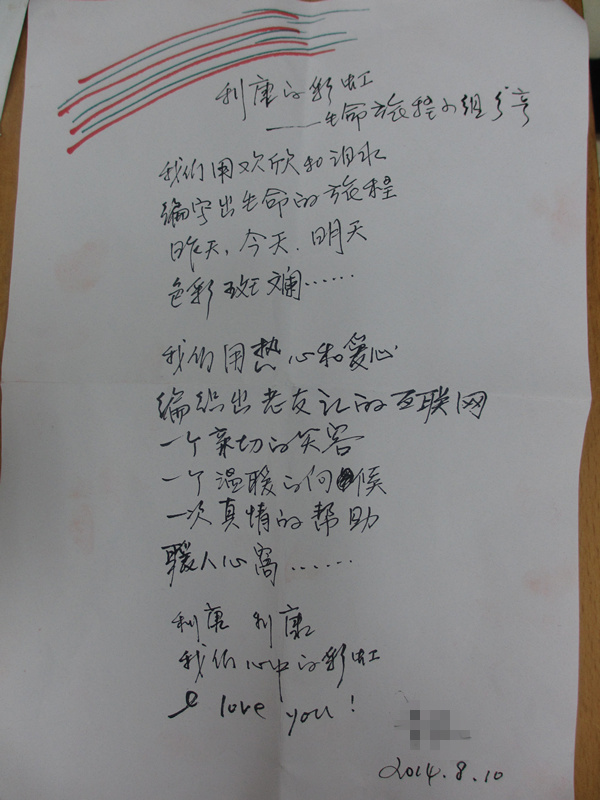 利康的彩虹
——生命旅程小组分享
我们用欢欣和泪水
编写出生命的旅程
昨天、今天.明天
色彩斑斓……
我们用热心和爱心
编织出老友记的互联网
一个亲切的笑容
一个温暖的问候
一次真情的帮助
暖人心窝……
利康 利康
我们心中的彩虹
I love you!
2014.8.10